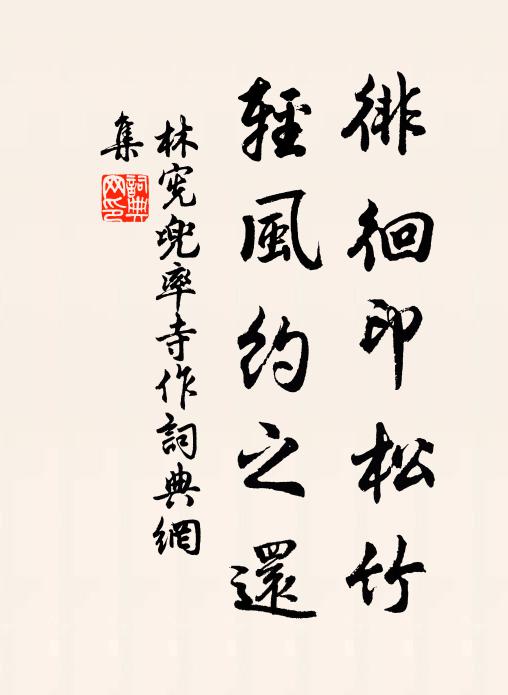 徘徊印松竹
輕風約之還
林寃兜率寺作詞典網
集
詞典
网印